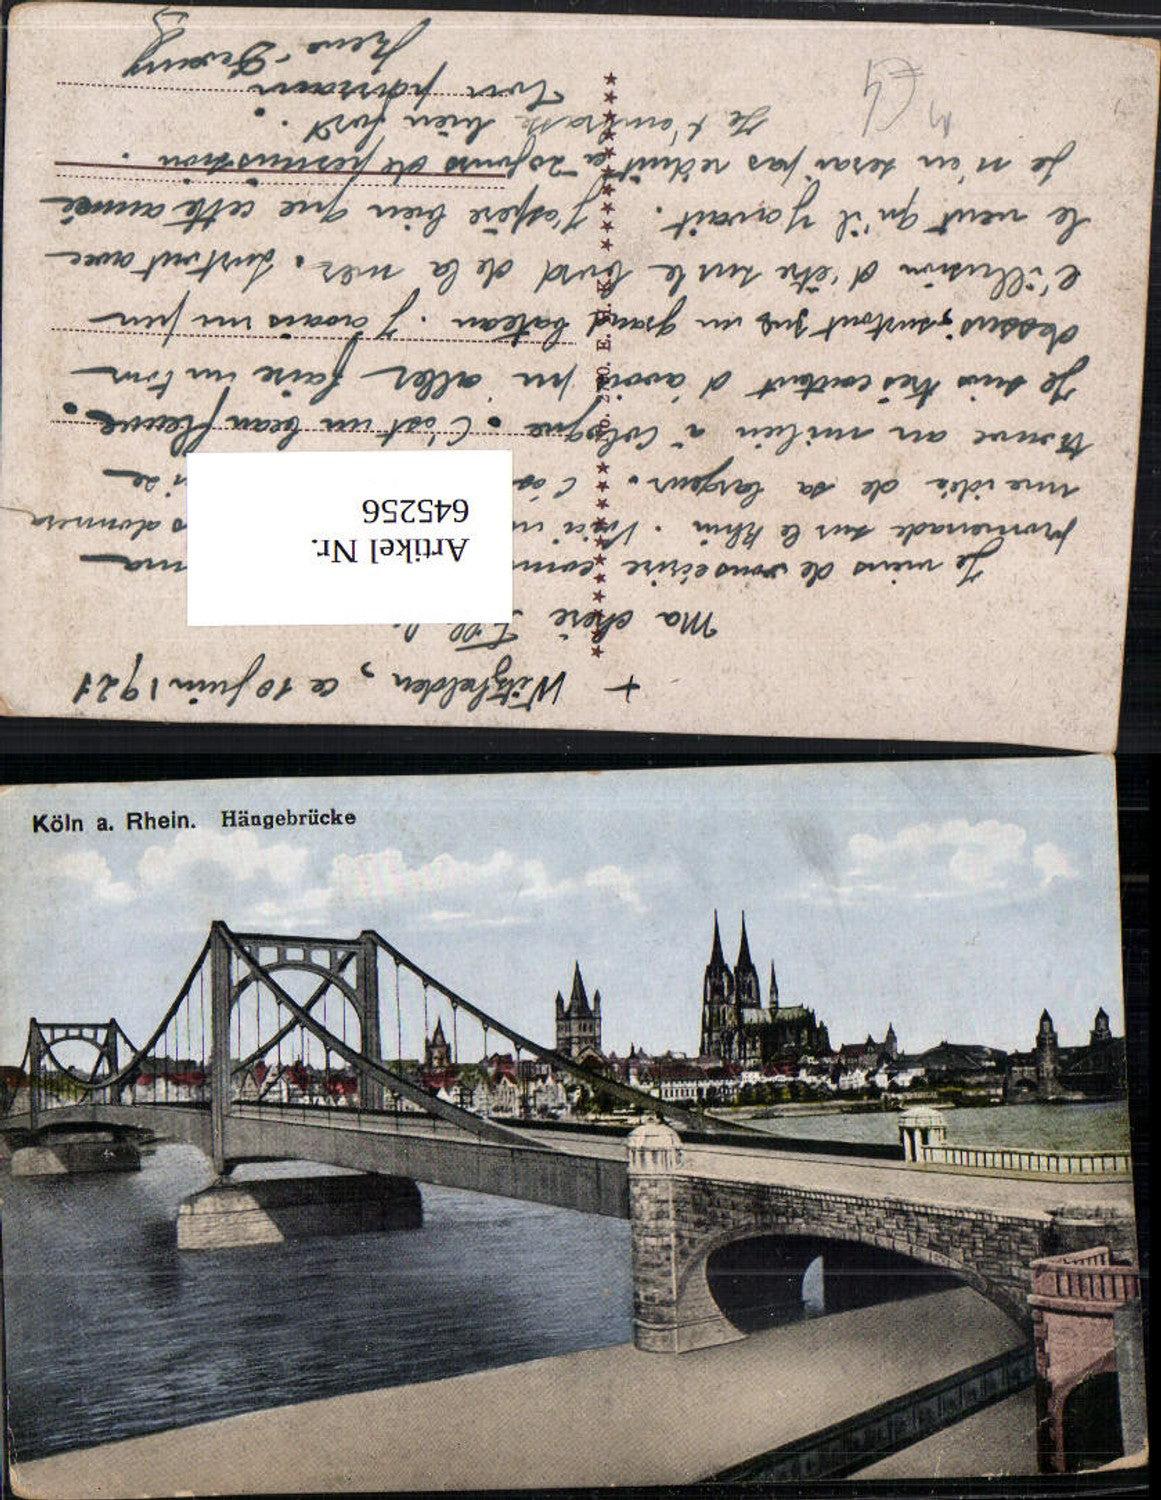 + Witzhelden, ce 10 juin 1921
Ma chère
Je viens de vous écrire ma
promenade sur le Rhin. Voici donnera
une idée de sa largeur.
trouve au milieu à Cologne. C'est un beau fleuve.
Je suis très content d'avoir pu aller faire un tour
dessus, surtout sur un grand bateau. J'avais un peu
l'illusion d'être sur le bord de la mer. Surtout avec
le vent qu'il y avait. J'espère bien que cette année
Je n'en serai pas réduit à 20 jours de permission.
Je t'embrasse bien fort.
Ton parrain

No. E. K.
Artikel Nr.
645256
Köln a. Rhein. Hängebrücke